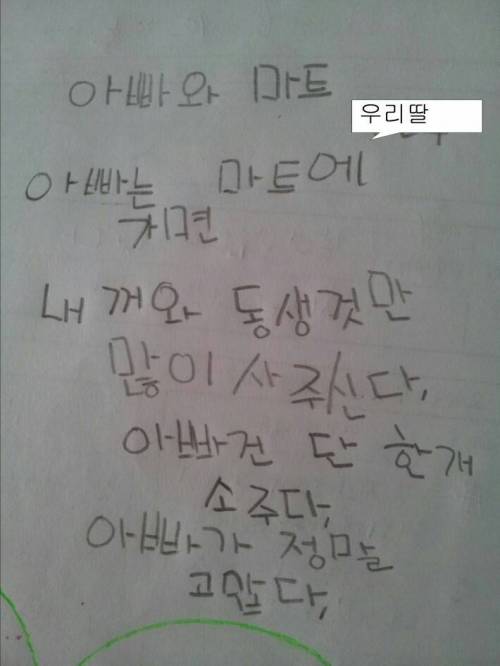 아빠와 마트
우리딸
아빠는 마트에
가면
내 꺼와 동생것만
많이 사 주신다,
아빠건 단 한개
소주다,
아빠가 정말
고맙다,